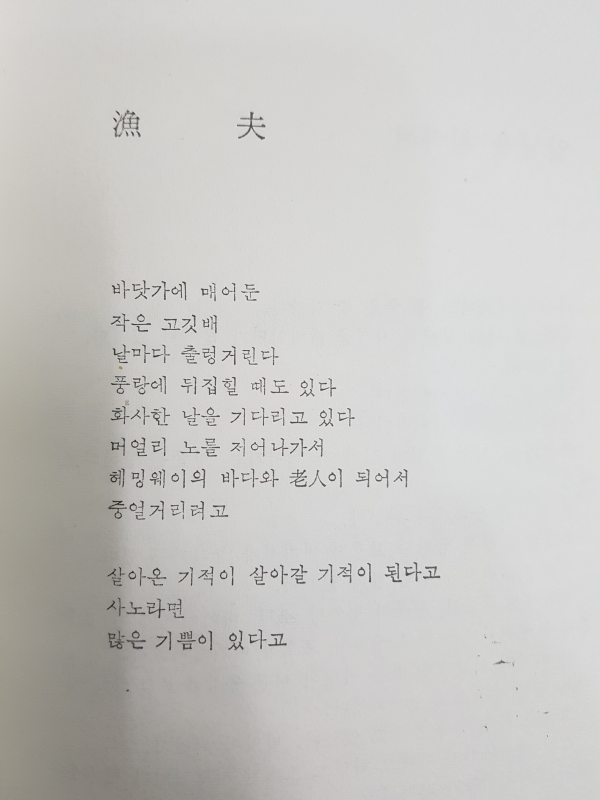 漁 夫
바닷가에 매어둔
작은 고깃배
날마다 출렁거린다
풍랑에 뒤집힐 때도 있다
화사한 날을 기다리고 있다
머얼리 노를 저어나가서
헤밍웨이의 바다와 老人이 되어서
중얼거리려고
살아온 기적이 살아갈 기적이 된다고
사노라면
많은 기쁨이 있다고